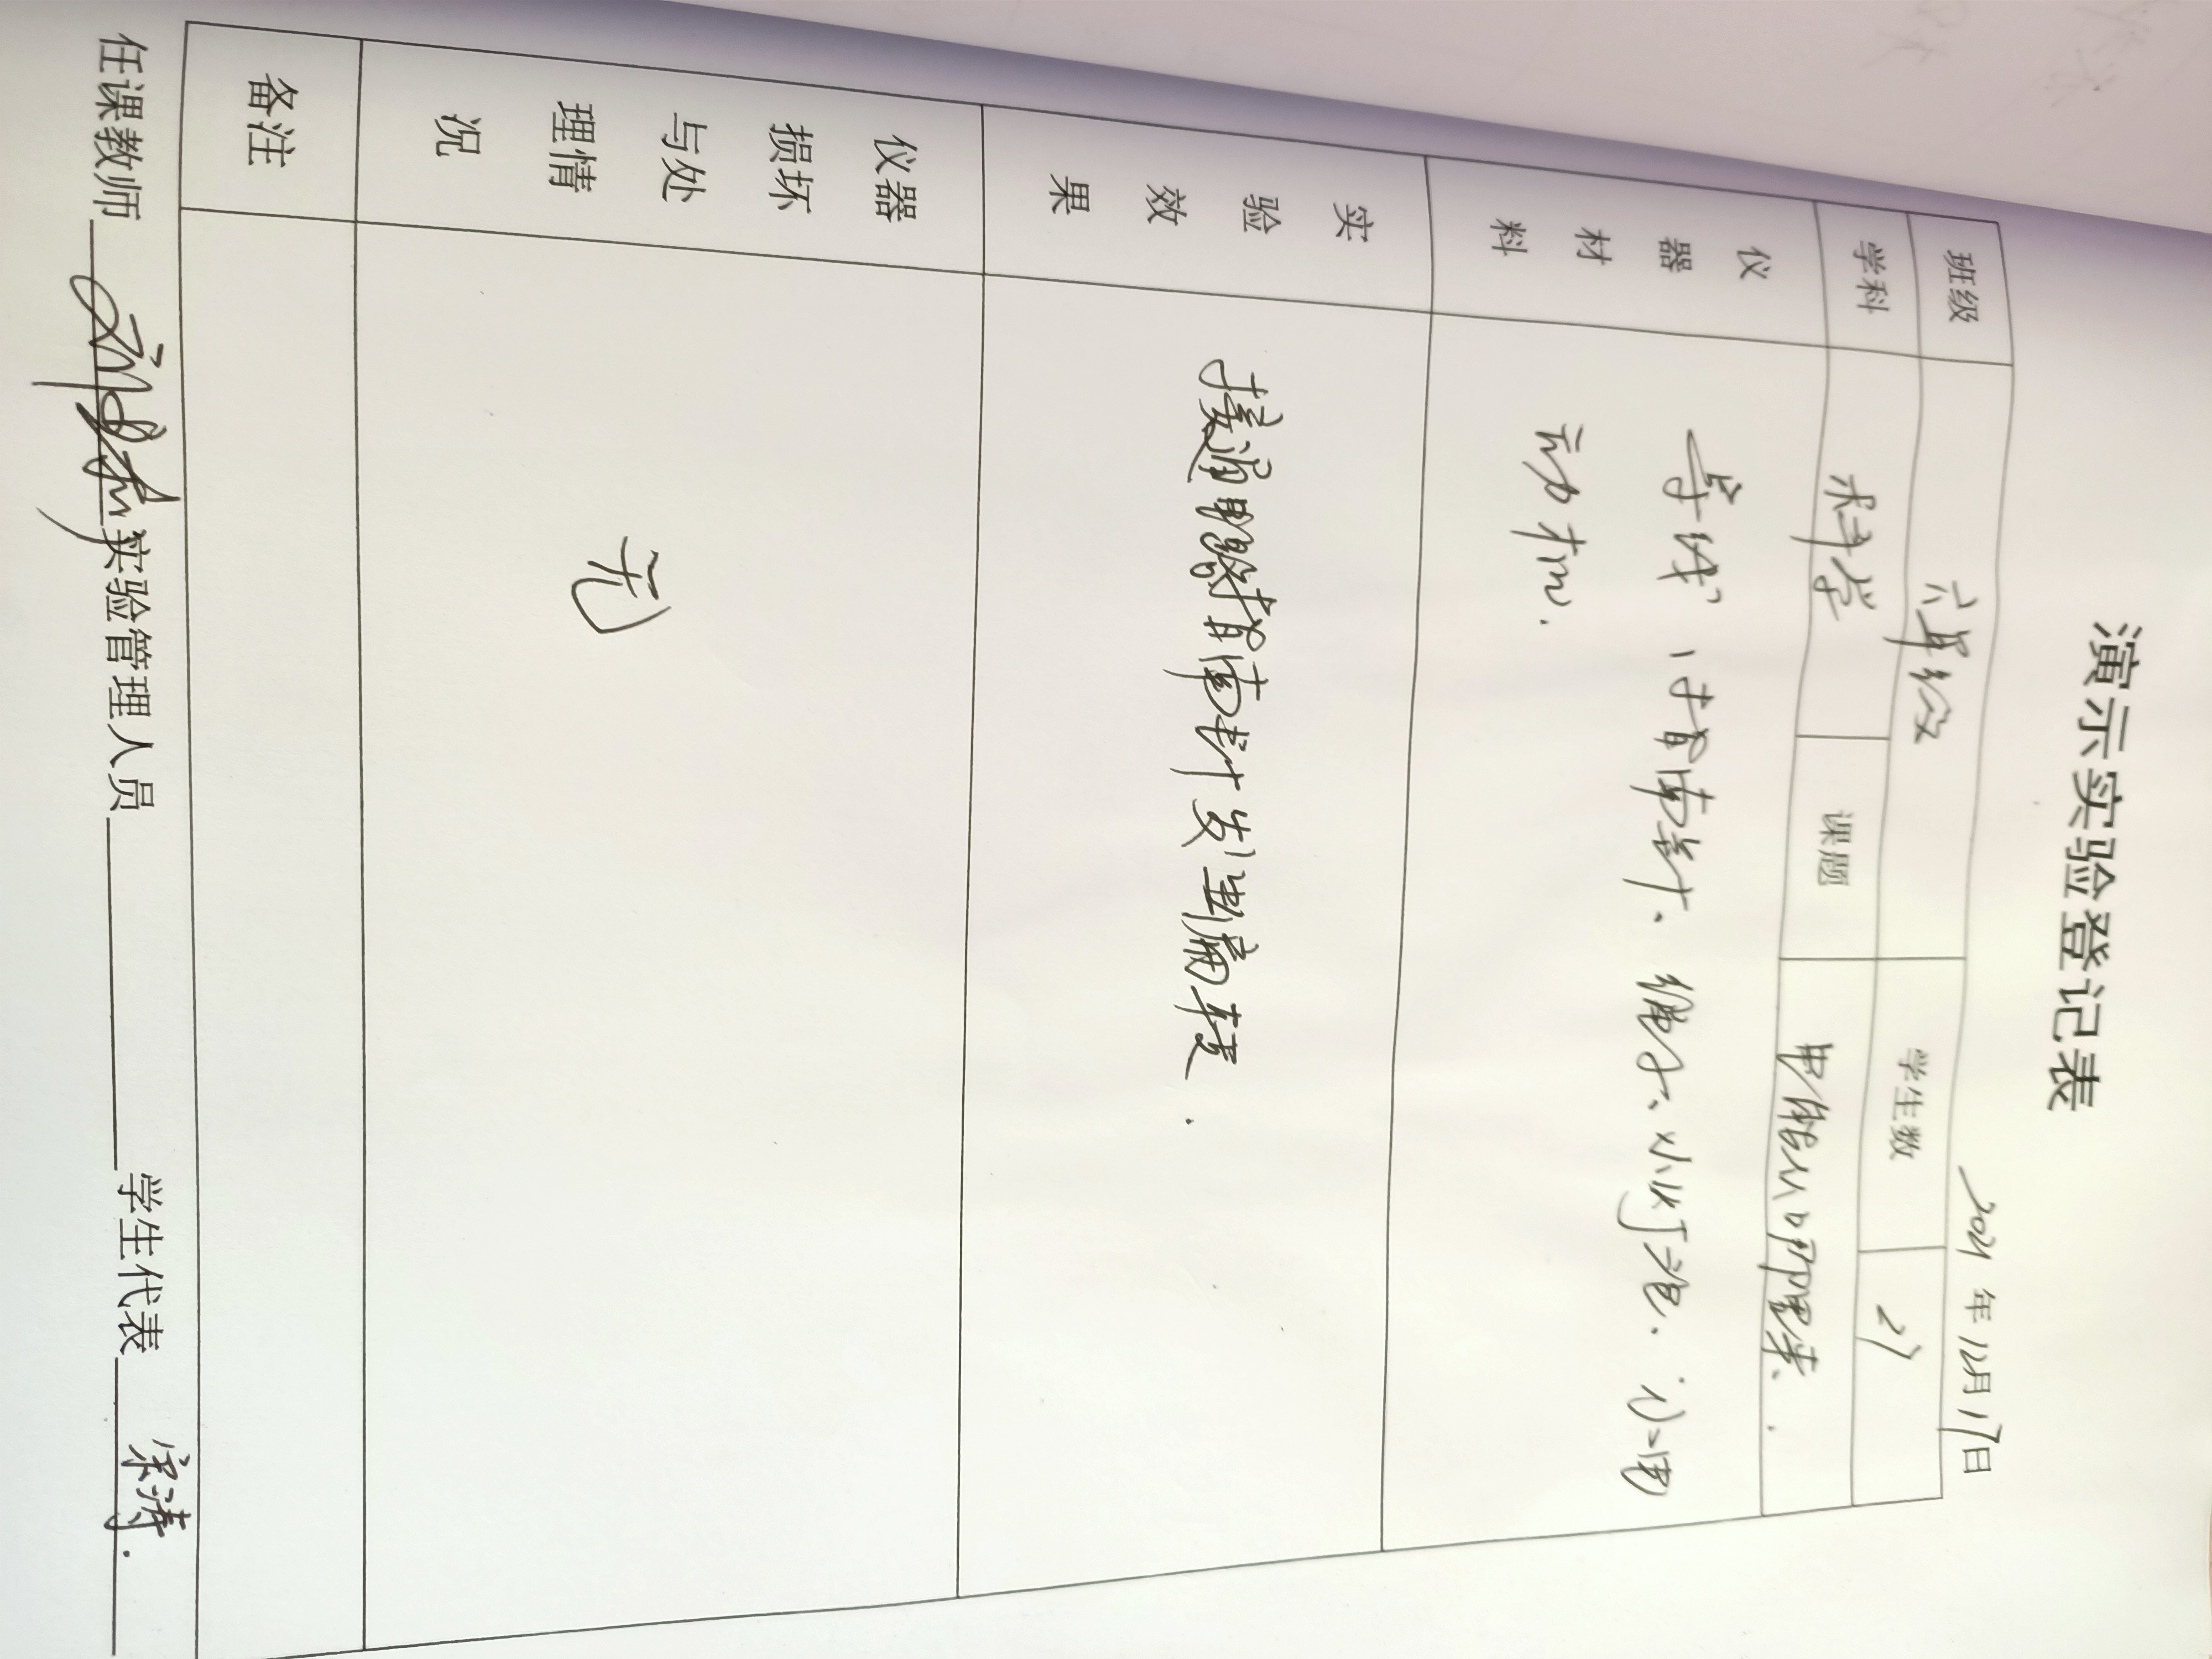 演示实验登记表
2021年12月17日
班级 六年级 学生数 27
学科 科学 课题 电能从哪里来.
仪器材料 导线、指南针、绳子、小灯泡、小电
动机.
实验效果 接通电路指南针发生偏转.
仪器损坏与处理情况 无
备注
任课教师 实验管理人员 学生代表 宗涛.